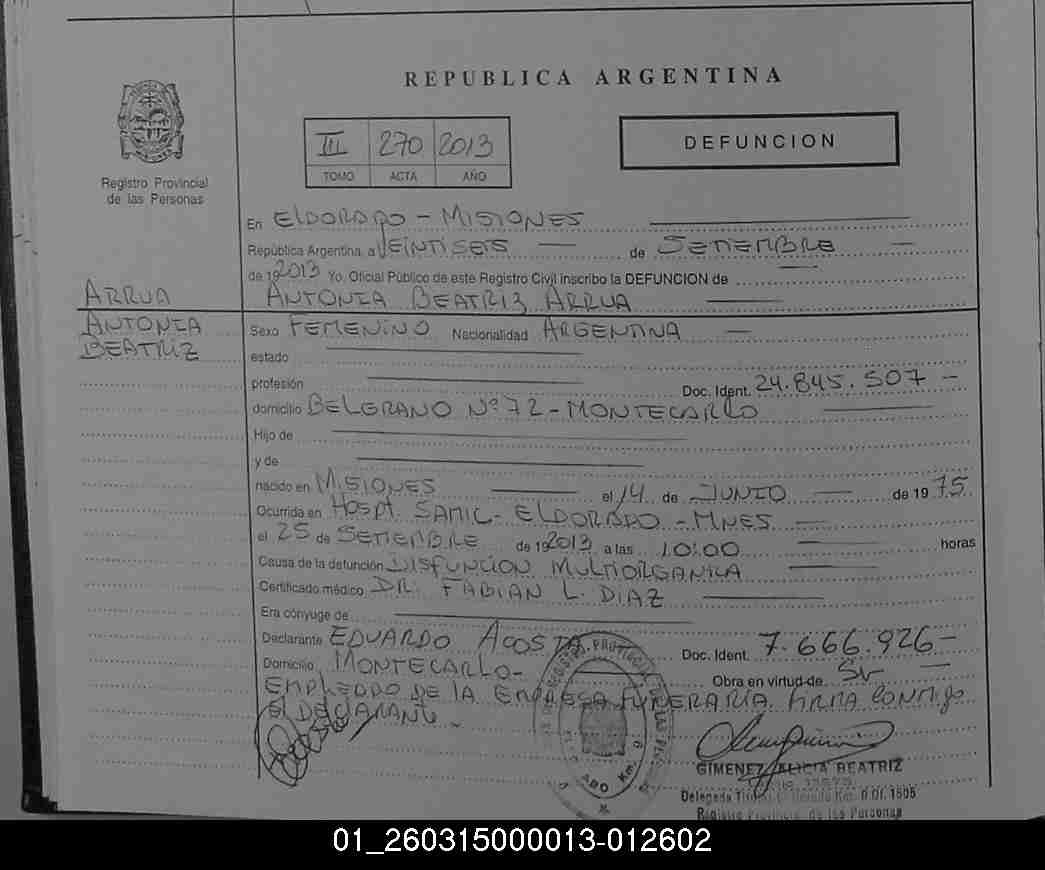 REPUBLICA ARGENTINA
III 270 2013
TOMO ACTA AÑO
DEFUNCION
Registro Provincial
de las Personas
ARRUA
ANTONIA
BEATRIZ
En ELDORADO - MISIONES
República Argentina, a VEINTISEIS de SETIEMBRE
de 192013 Yo, Oficial Público de este Registro Civil inscribo la DEFUNCION de
ANTONIA BEATRIZ ARRUA
Sexo FEMENINO Nacionalidad ARGENTINA
estado
profesión Doc. Ident. 24.845.507
domicilio BELGRANO Nº 72 - MONTECARLO
Hijo de
y de
nacido en MISIONES el 14 de JUNIO de 1975
Ocurrida en HOSPT. SAMIC - ELDORADO - MNES
el 25 de SETIEMBRE de 192013 a las 10:00 horas
Causa de la defunción DISFUNCION MULTIORGANICA
Certificado médico DR. FABIAN L. DIAZ
Era cónyuge de
Declarante EDUARDO ACOSTA Doc. Ident. 7.666.926
Domicilio MONTECARLO - Obra en virtud de
EMPLEADO DE LA EMPRESA FUNERARIA FIRMA CONMIGO
EL DECLARANTE -
GIMENEZ ALICIA BEATRIZ
Registro Provincial de las Personas
01_260315000013-012602